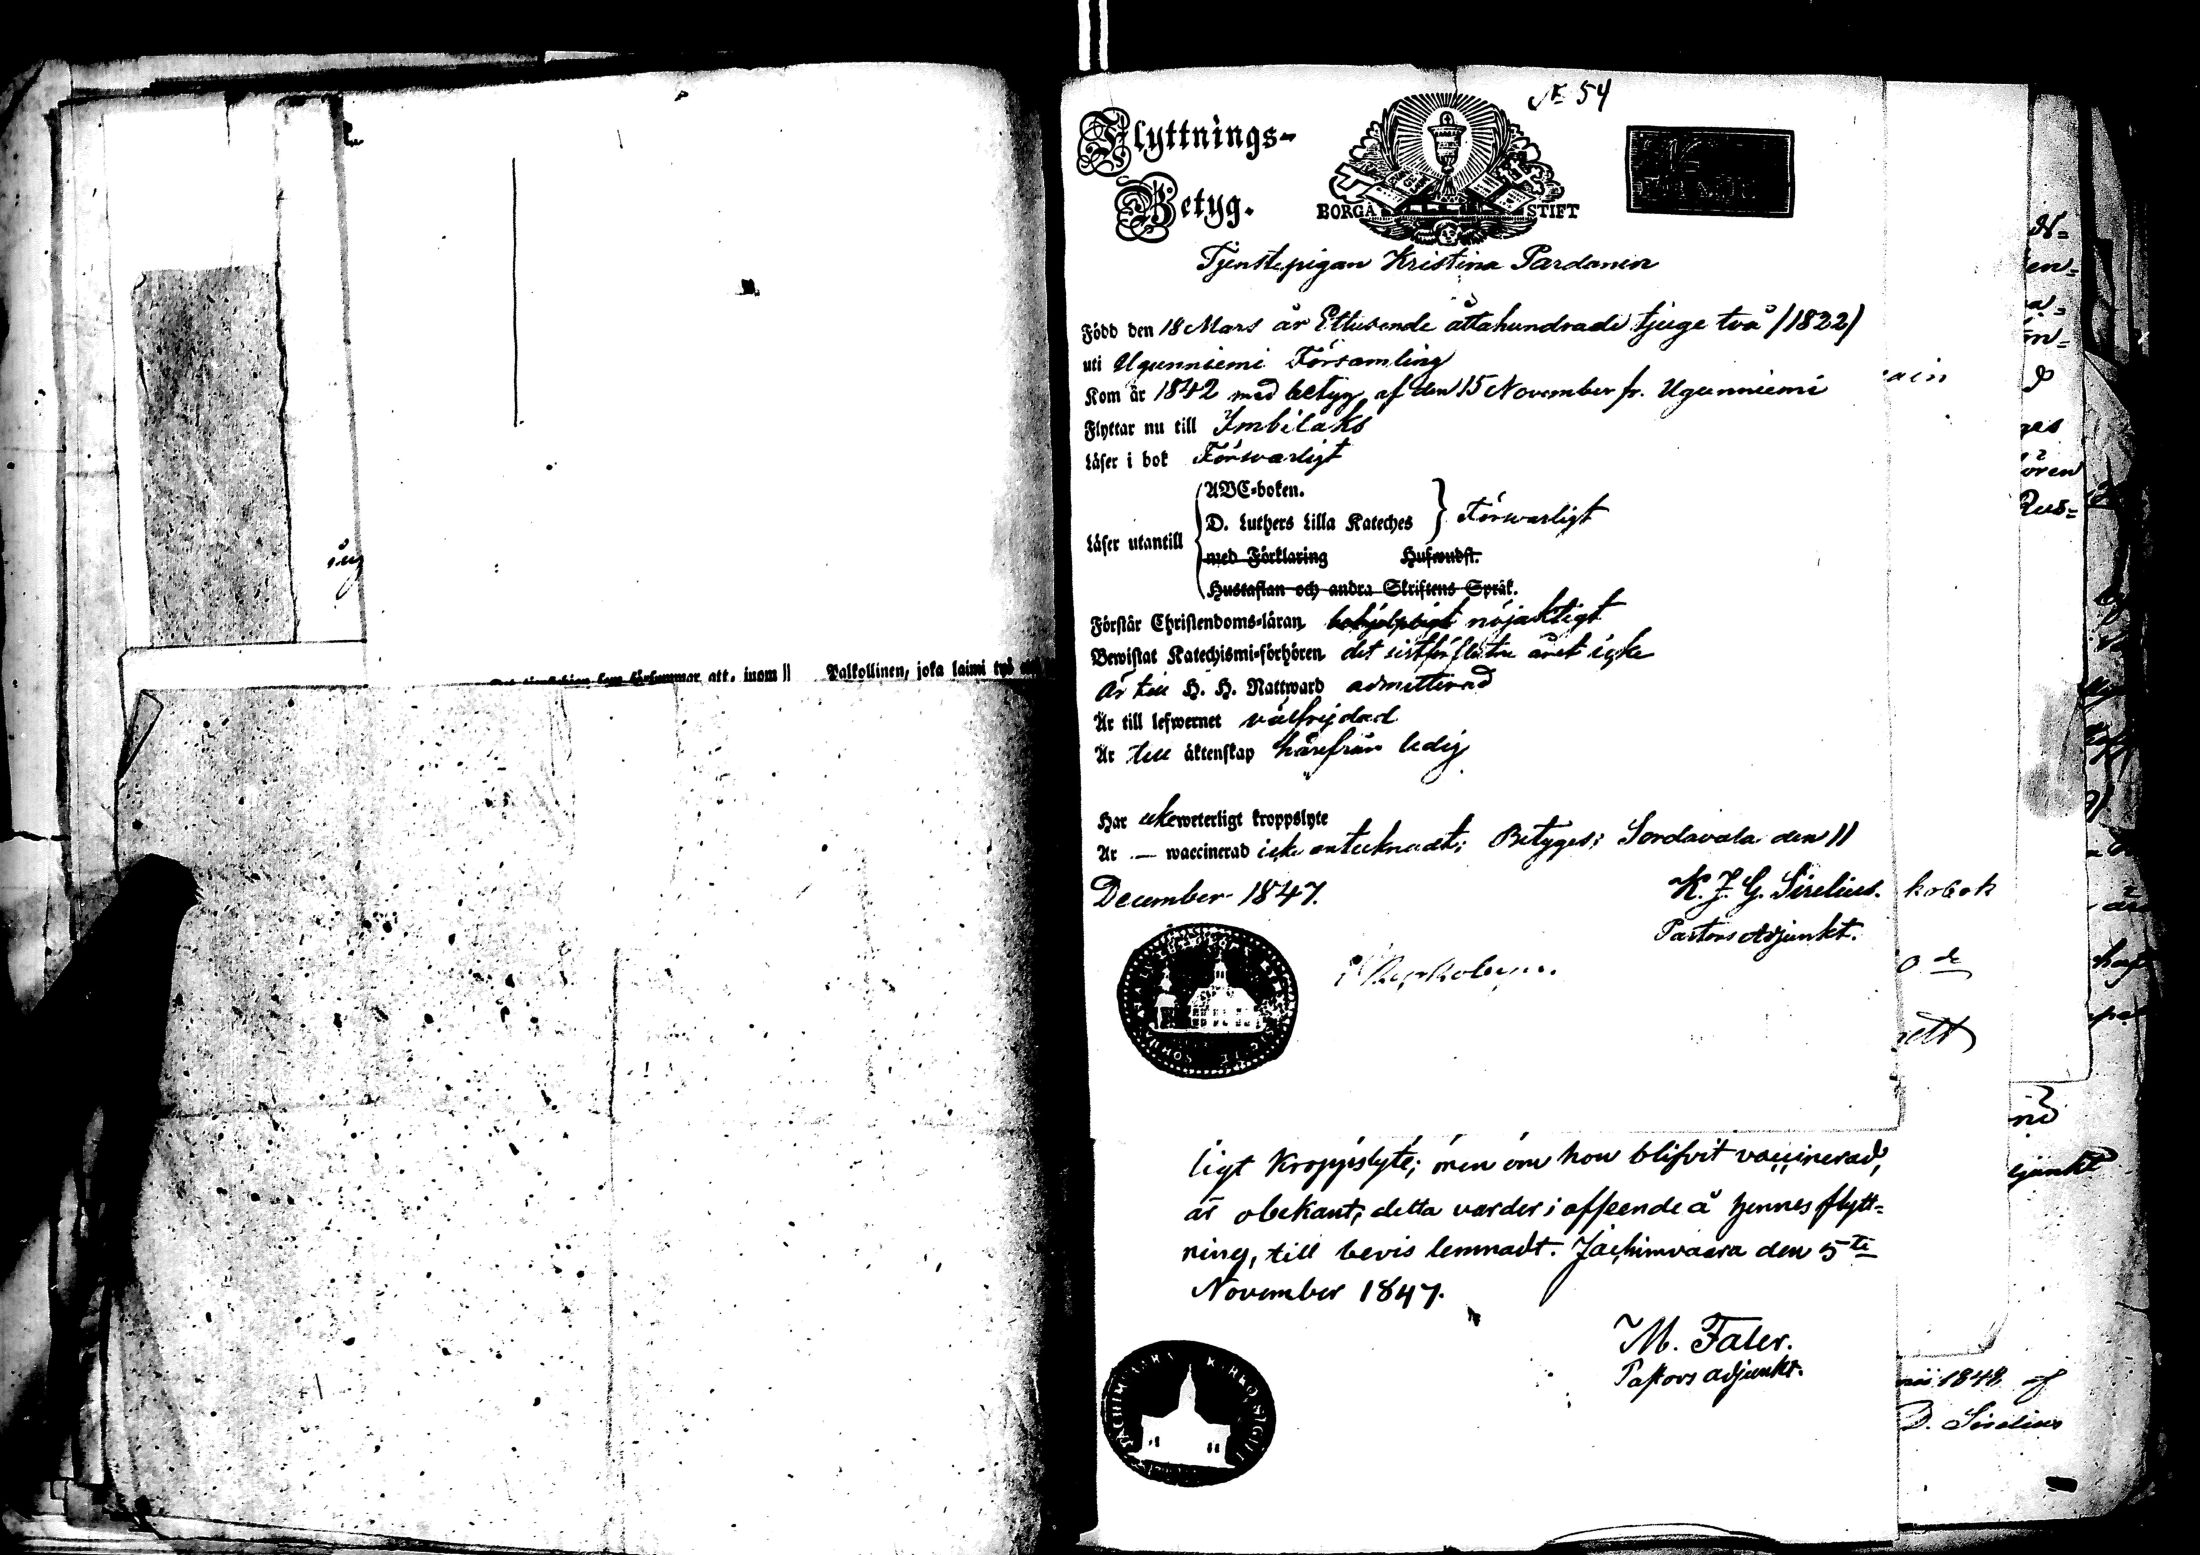 sig
Palkollinen, joka laimi
№ 54
Flyttnings-
Betyg.
BORGÅ STIFT
Tjenstepigan Kristina Pardanen
Född den 18 Mars år Ettusende åttahundrade tjuge två /1822/
uti Ugunniemi Församling
Kom år 1842 med betyg af den 15 November fr. Ugunniemi
Flyttar nu till Imbilaks
Läser i bok Försvarligt
Läser utantill
ABC-boken.
D. Luthers Lilla Kateches
Försvarligt
med Förklaring Hufwudst.
Hustaflan och andra Skriftens Språk.
Förstår Christendoms-läran nöjaktigt
Bewistat Katechismi-förhören det sistförflutne året icke
Är till H. H. Nattward admitterad
Är till lefwernet välfrejdad
Är till äktenskap härifrån ledig
Har ickeweterligt kroppslyte
Är — waccinerad icke antecknadt; Betygas; Sordavala den 11
December 1847.
K. J. G. Sirelius.
Pastors Adjunkt.
ligt Kroppslyte; men om hon blifvit vaccinerad,
är obekant; detta varder i afseende å hennes flytt=
ning, till bevis lemnadt. Jachimvaara den 5te
November 1847.
M. Faler.
Pastors adjunkt.
ain
kobok
1848 af
D. Sirelius